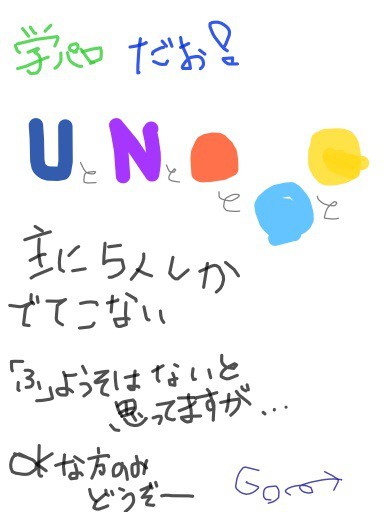 学パロ だお!
UとNと と と
主に5人しか
でてこない
「ふ」ようそはないと
思ってますが...
OKな方のみ
どうぞー
Go→